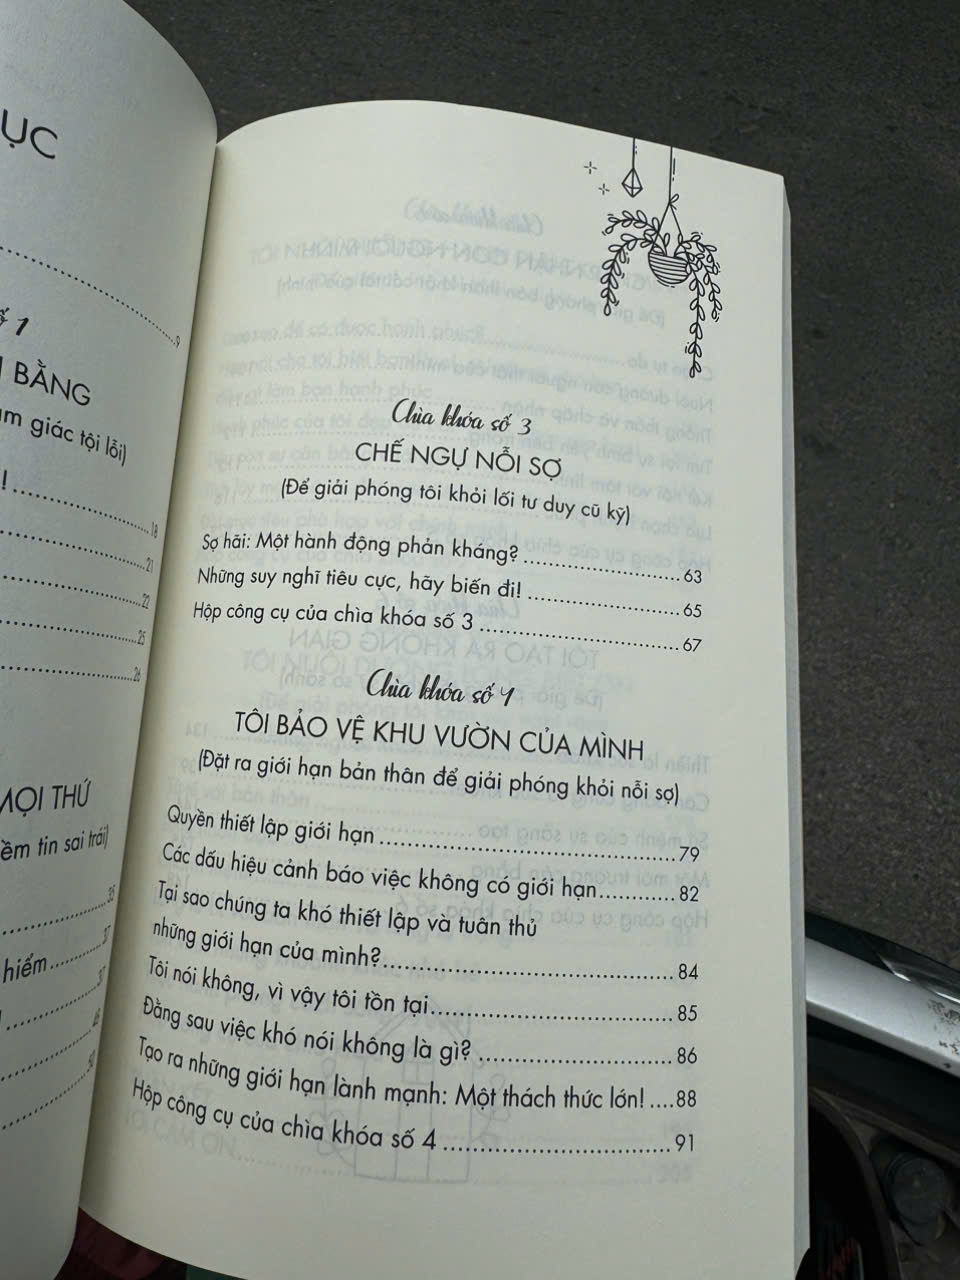 ỤC
9
ố 1
BẰNG
ảm giác tội lỗi)
! 18
21
22
25
26
MỌI THỨ
ềm tin sai trái)
35
hiểm 37
37
48
50
Chìa khóa số 3
CHẾ NGỰ NỖI SỢ
(Để giải phóng tôi khỏi lối tư duy cũ kỹ)
Sợ hãi: Một hành động phản kháng? 63
Những suy nghĩ tiêu cực, hãy biến đi! 65
Hộp công cụ của chìa khóa số 3 67
Chìa khóa số 4
TÔI BẢO VỆ KHU VƯỜN CỦA MÌNH
(Đặt ra giới hạn bản thân để giải phóng khỏi nỗi sợ)
Quyền thiết lập giới hạn 79
Các dấu hiệu cảnh báo việc không có giới hạn 82
Tại sao chúng ta khó thiết lập và tuân thủ
những giới hạn của mình? 84
Tôi nói không, vì vậy tôi tồn tại 85
Đằng sau việc khó nói không là gì? 86
Tạo ra những giới hạn lành mạnh: Một thách thức lớn! 88
Hộp công cụ của chìa khóa số 4 91